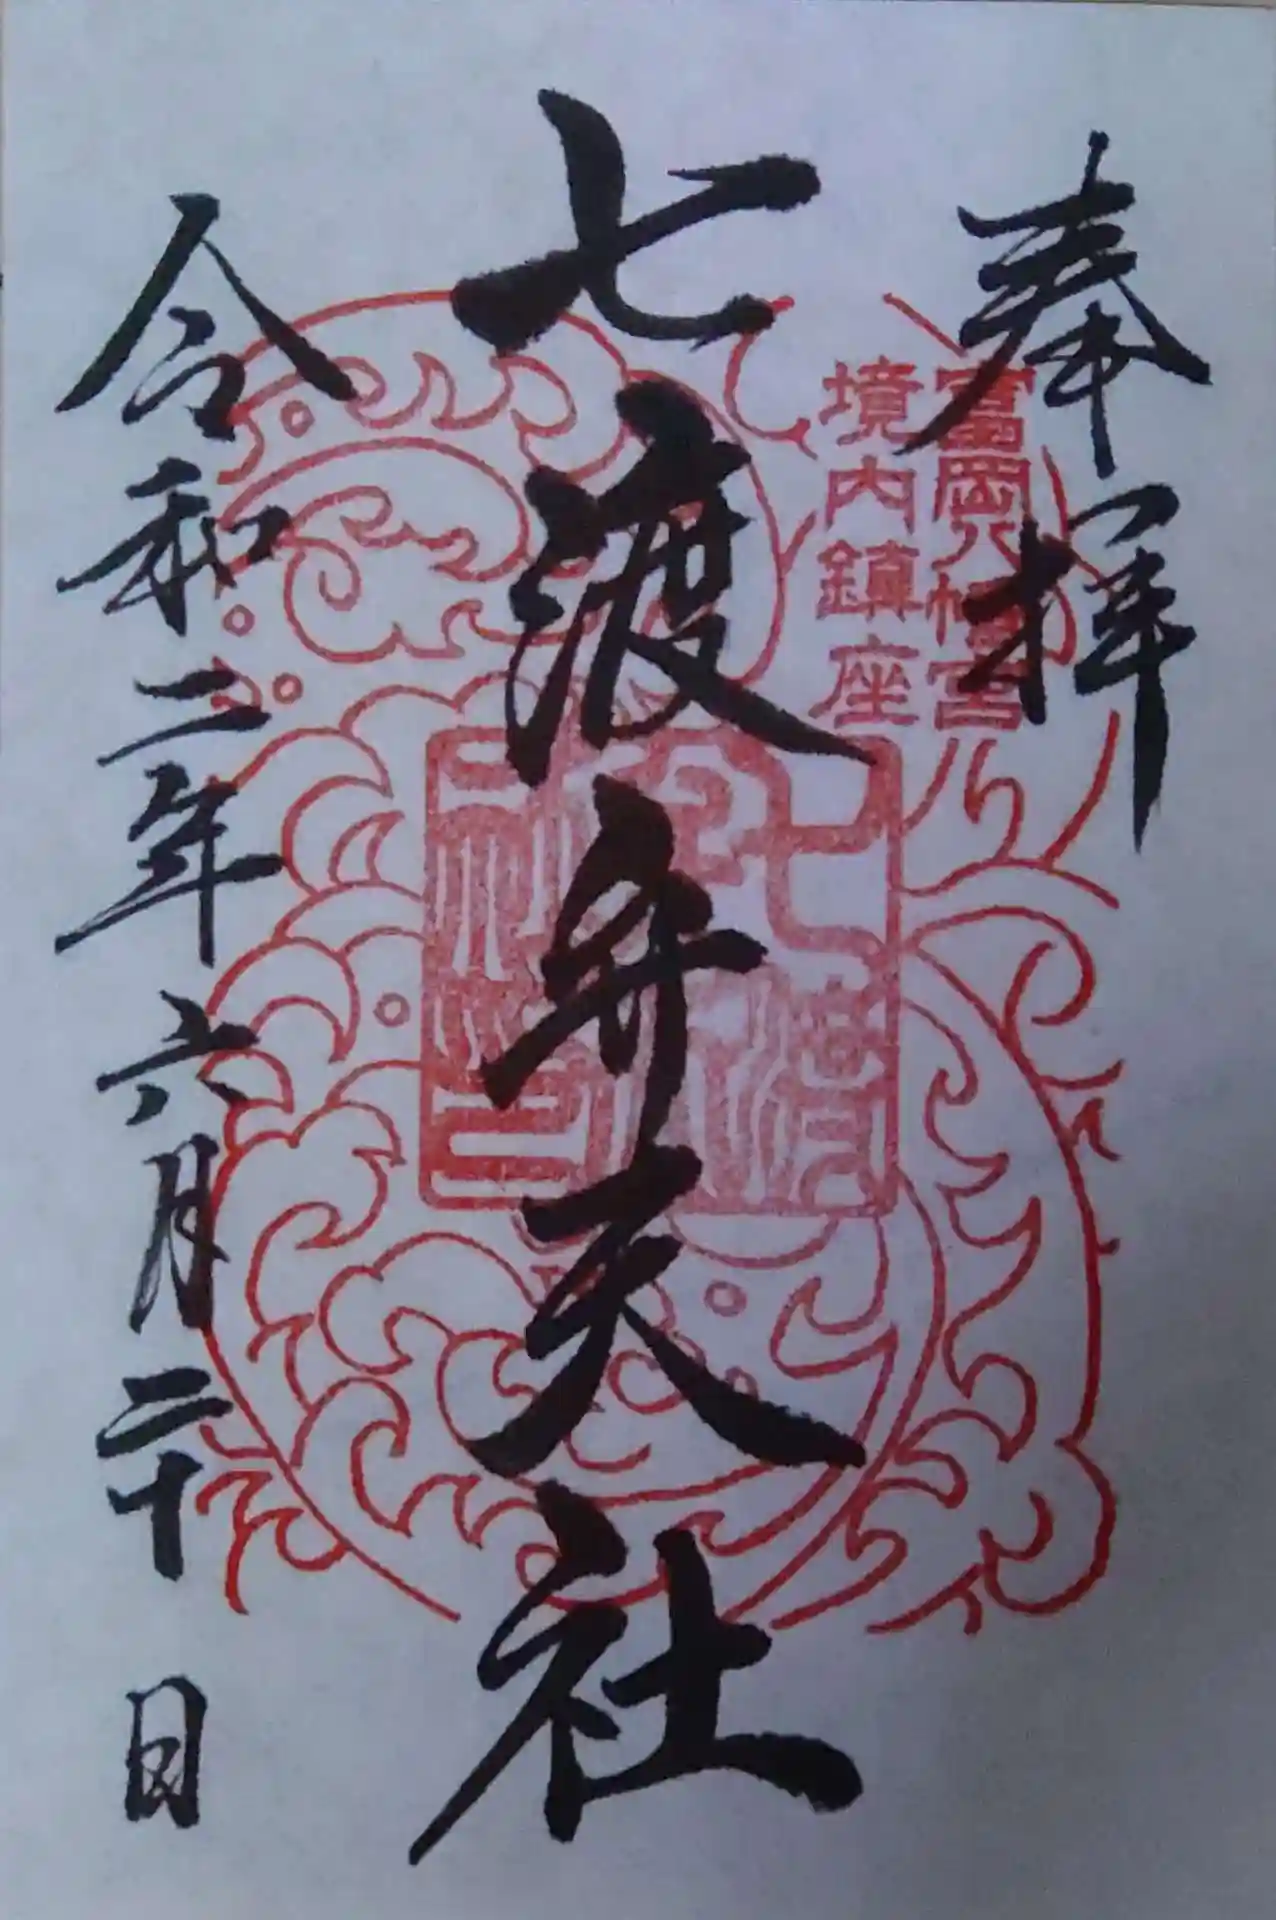 奉拝
冨岡八幡宮
境内鎮座
七渡弁天社
令和二年六月二十日